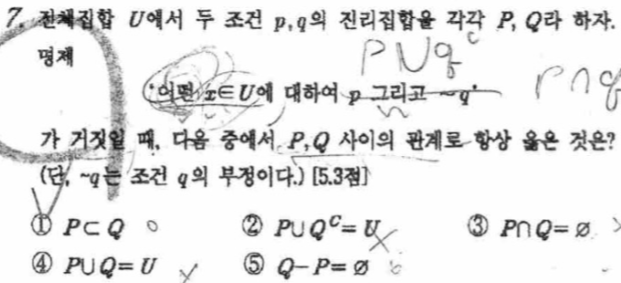 7. 전체집합 U에서 두 조건 p, q의 진리집합을 각각 P, Q라 하자.
명제
P∪q^c
'어떤 x∈U에 대하여 p 그리고 ~q'
가 거짓일 때, 다음 중에서 P, Q 사이의 관계로 항상 옳은 것은?
(단, ~q는 조건 q의 부정이다.) [5.3점]
① P⊂Q ② P∪Q^C=U ③ P∩Q=∅
④ P∪Q=U ⑤ Q-P=∅